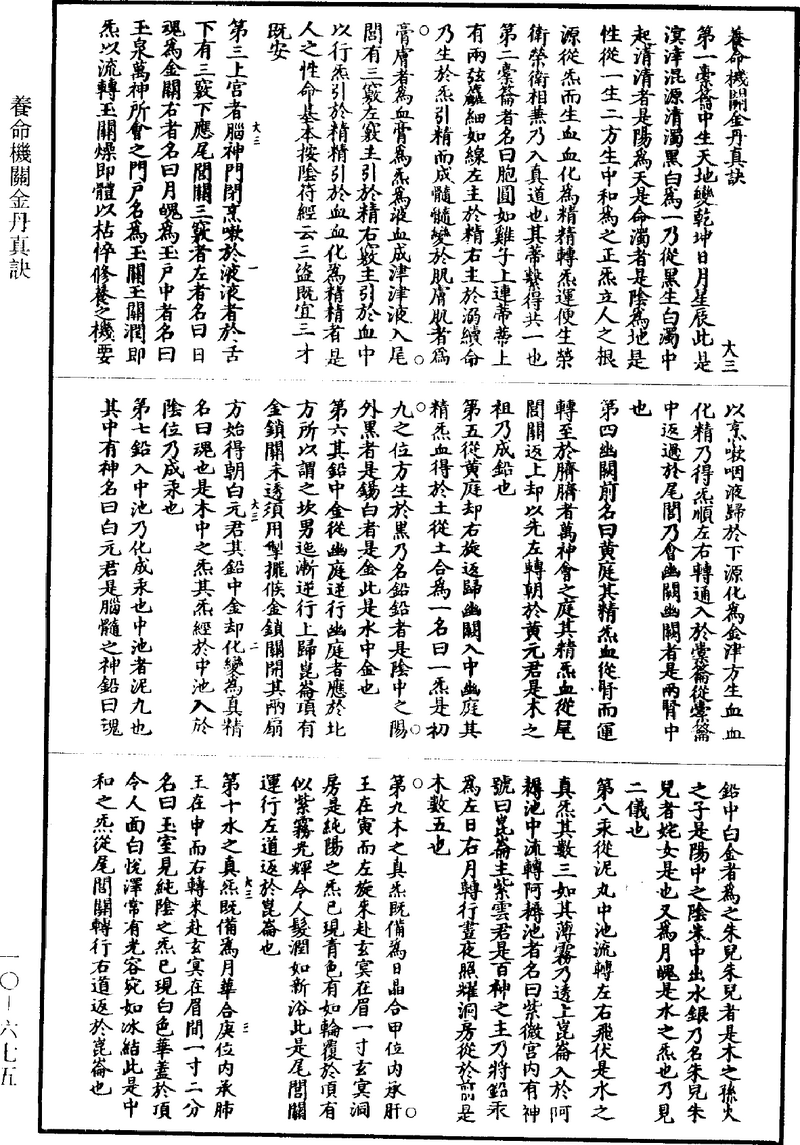 養命機關金丹真訣
一〇—六七五
養命機關金丹真訣
大三
第一橐籥中生天地變乾坤日月星辰此是
溟涬混源清濁黑白為一乃從黑生白濁中
起清清者是陽為天是命濁者是陰為地是
性從一生二方生中和為之正炁立人之根
源從炁而生血血化為精精轉炁運便生榮
衛榮衛相兼乃入真道也其蒂繫得共一也
第二橐籥者名曰胞圓如雞子上連蒂蒂上
有兩弦籬細如線左主於精右主於溺續命
乃生於炁引精而成髓髓變於肌膚肌者為
膏膚者為血膏為炁炁為液血成津津液入尾
閭有三竅左竅主引於精右竅主引於血中
以行炁引於精精引於血血化為精精者是
人之性命基本按陰符經云三盜既宜三才
既安
大三
一
第三上宮者腦神門閉烹嗽於液液者於舌
下有三竅下應尾閭關三竅者左者名曰日
魂為金關右者名曰月魄為玉戶中者名曰
玉泉萬神所會之門戶名為玉關玉關潤即
炁以流轉玉關燥即體以枯悴修養之機要
以烹嗽咽液歸於下源化為金津方生血血
化精乃得炁順左右轉通入於橐籥從橐籥
中返過於尾閭乃會幽關幽關者是兩腎中
也
第四幽關前名曰黃庭其精炁血從腎而運
轉至於臍臍者萬神會之庭其精炁血從尾
閭關返上却以先左轉朝於黃元君是木之
祖乃成鉛也
第五從黃庭却右旋返歸幽關入中幽庭其
精炁血得於土從土合為一名曰一炁是初
九之位方生於黑乃名鉛鉛者是陰中之陽
外黑者是錫白者是金此是水中金也
第六其鉛中金從幽庭逆行幽庭者應於北
方所以謂之坎男迤漸逆行上歸崑崙項有
金鎖關未透須用掣擺候金鎖關開其兩扇
大三
二
方始得朝白元君其鉛中金却化變為真精
名曰魂也是木中之炁其炁經於中池入於
陰位乃成汞也
第七鉛入中池乃化成汞也中池者泥丸也
其中有神名曰白元君是腦髓之神鉛曰魂
鉛中白金者為之朱兒朱兒者是木之孫火
之子是陽中之陰朱中出水銀乃名朱兒朱
兒者姹女是也又為月魄是水之炁也乃見
二儀也
第八汞從泥丸中池流轉左右飛伏是水之
真炁其數三如其薄霧乃透上崑崙入於阿
耨池中流轉阿耨池者名曰紫微宮內有神
號曰崑崙主紫雲君是百神之主乃將鉛汞
為左日右月轉行晝夜照耀洞房從於前是
木數五也
第九木之真炁既備為日晶合甲位內承肝
王在寅而左旋朱赴玄冥在眉一寸玄冥洞
房是純陽之炁已現青色有如輪覆於頂有
似紫霧光輝令人髮潤如新浴此是尾閭關
運行左道返於崑崙也
大三
三
第十水之真炁既備為月華合庚位內承肺
王在申而右轉來赴玄冥在眉間一寸二分
名曰玉室見純陰之炁已現白色華蓋於頂
令人面白悅澤常有光容宛如冰結此是中
和之炁從尾閭關轉行右道返於崑崙也